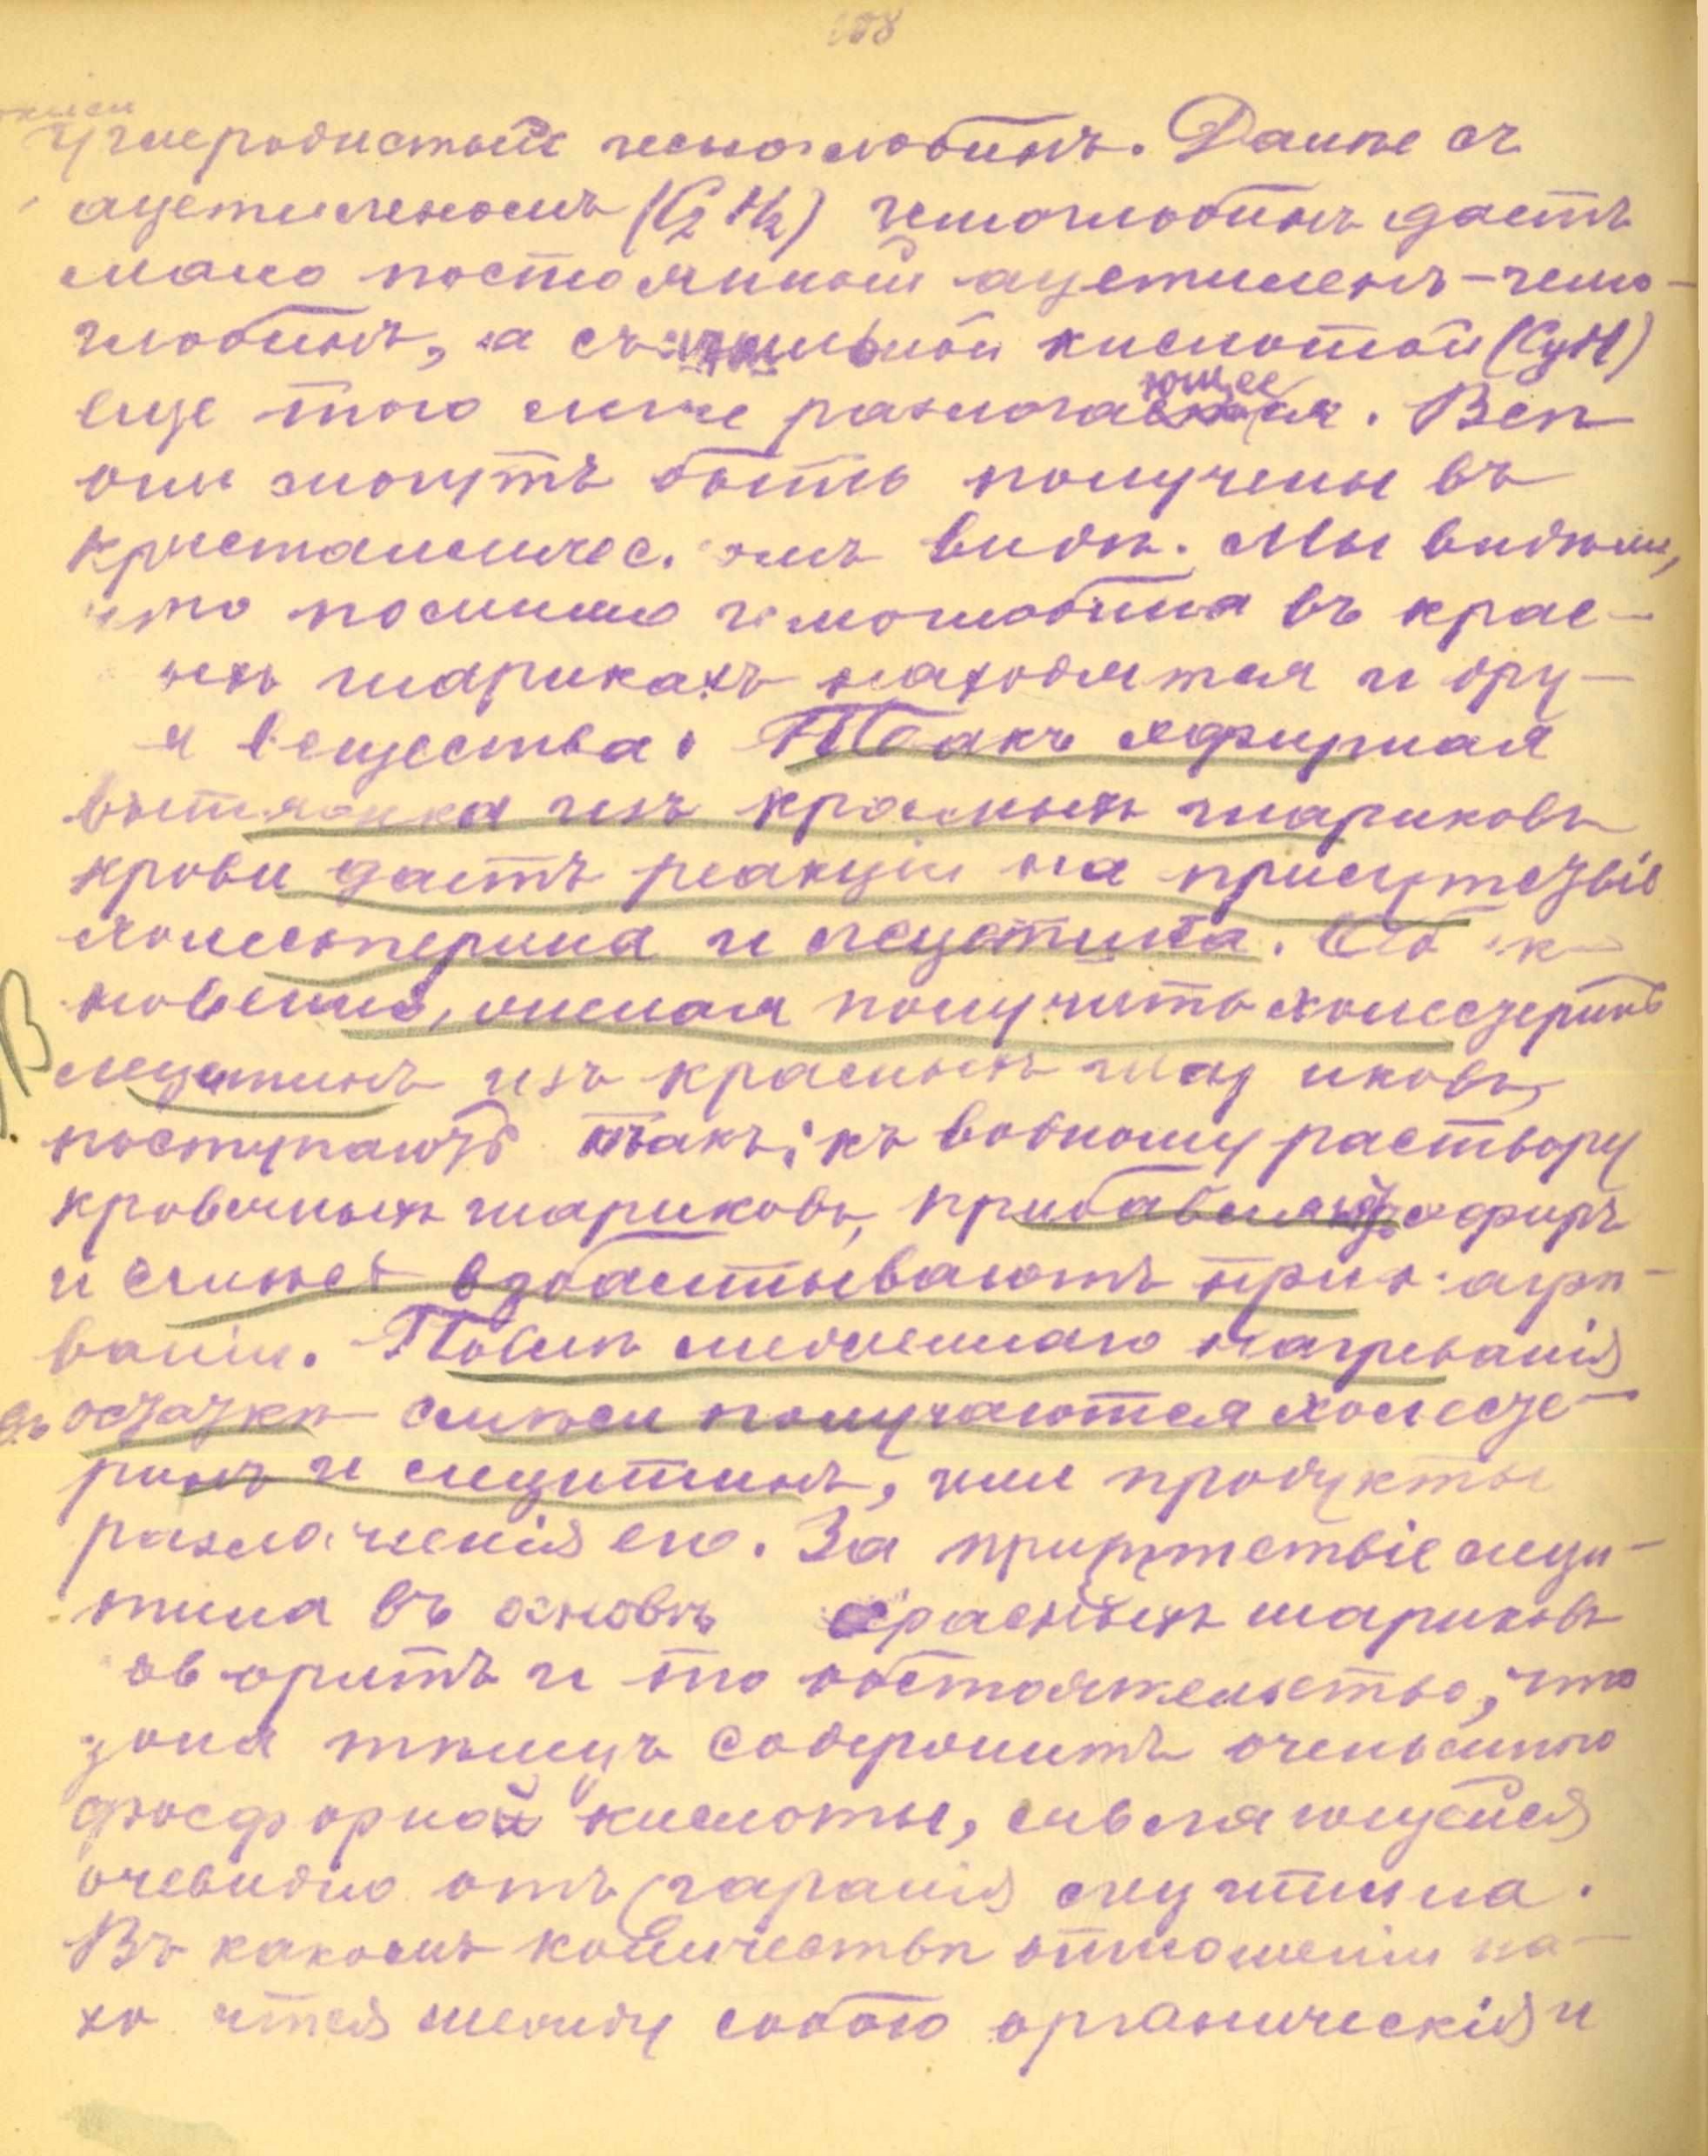 108
окиси
углеродистый гемоглобинъ. Далѣе съ
ацетиленомъ (C2H2) гемоглобинъ даетъ
мало постоянный ацетиленъ-гемо-
глобинъ, а съ синильной кислотой (CyH)
еще того легче разлагающееся. Всѣ
они могутъ быть получены въ
кристаллическомъ видѣ. Мы видимъ,
что помимо гемоглобина въ крас-
ныхъ шарикахъ находятся и дру-
я вещества. Такъ эфирная
вытяжка изъ красныхъ шариковъ
крови даетъ реакціи на присутствіе
холестерина и лецитина. Обык-
новенно, желая получить холестеринъ
лецитинъ изъ красныхъ шариковъ,
поступаютъ такъ: къ водному раствору
кровяныхъ шариковъ, прибавляютъ эфиръ
и смѣсь взбалтываютъ при нагрѣ-
ваніи. Послѣ медленнаго нагрѣванія
въ остаткѣ смѣси получаются холесте-
ринъ и лецитинъ, или продукты
разложенія его. За присутствіе леци-
тина въ основѣ красныхъ шариковъ
говоритъ и то обстоятельство, что
зола тѣлецъ содержитъ очень много
фосфорной кислоты, являющейся
очевидно отъ сгаранія лецитина.
Въ какомъ количествѣ отношеніи на-
ходятся между собою органическія и